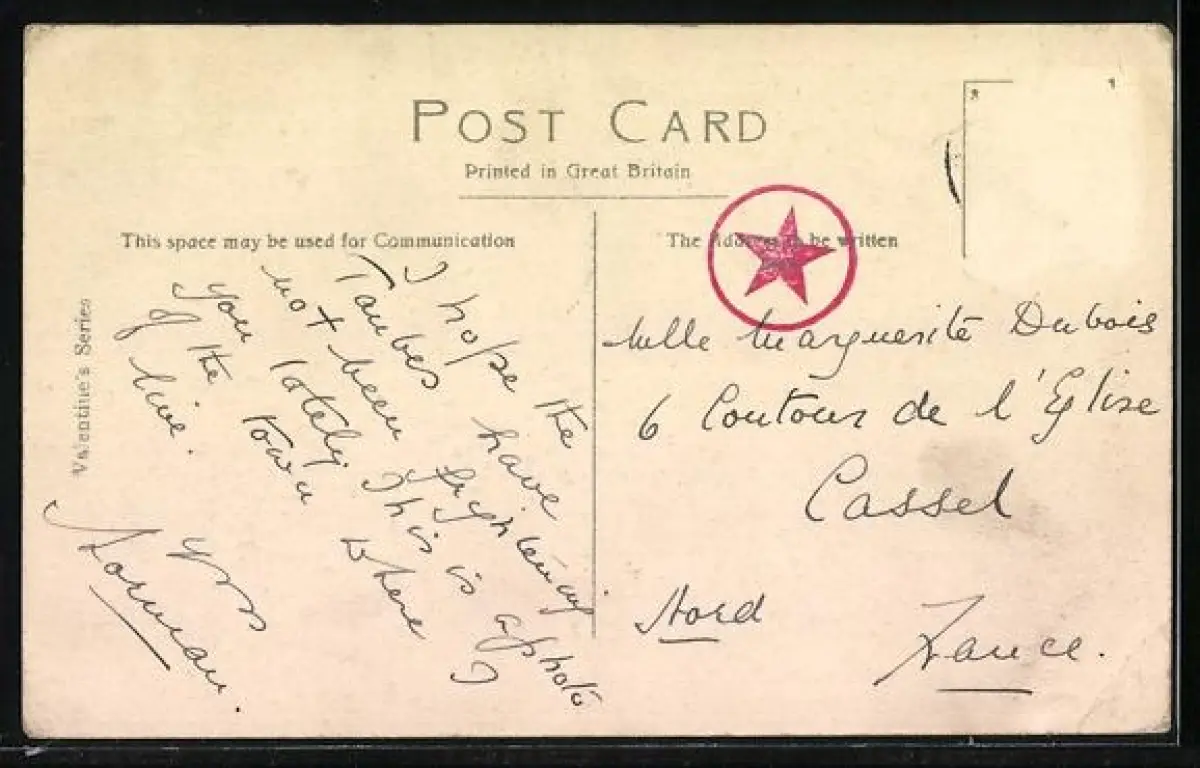 POST CARD
Printed in Great Britain
This space may be used for Communication
The Address to be written
Valentine's Series
I hope the
Taubes have
not been frightening
you lately. This is a photo
of the town where I
live.
Yrs
Norman.
Mlle Marguerite Dubois
6 Contour de l'Eglise
Cassel
Nord
France.